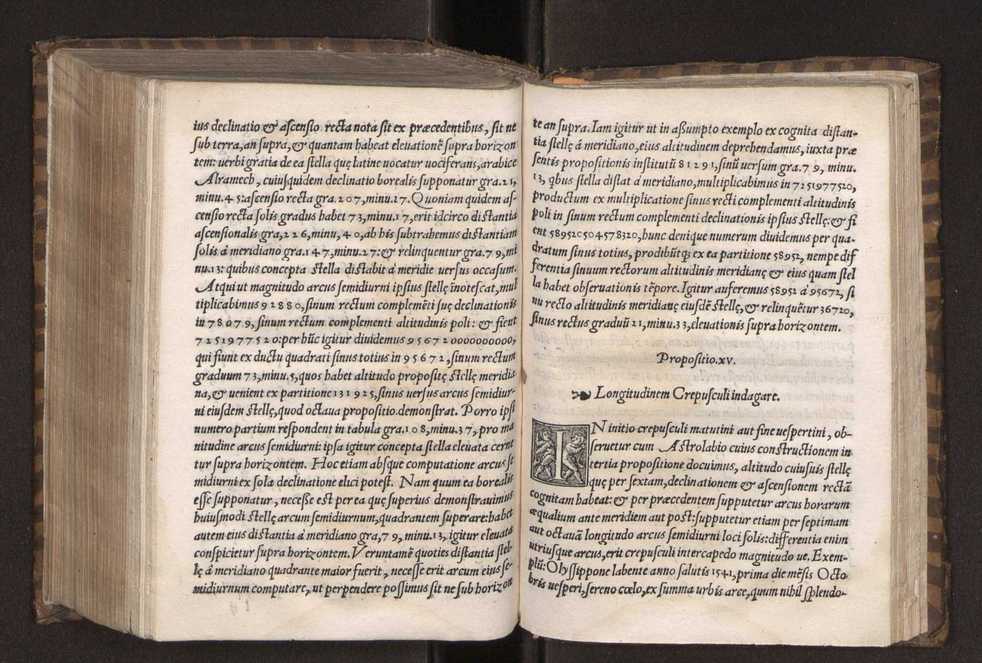 ius declinatio & ascensio recta nota sit ex præcedentibus, sit ne
sub terra, an supra, & quantam habeat eleuationē supra horizon
tem: uerbi gratia de ea stella que latine uocatur uociferans, arabice
Alramech, cuiusquidem declinatio borealis supponatur gra. 21,
minu. 45: ascensio recta gra. 207, minu. 17. Quoniam quidem as-
censio recta solis gradus habet 73, minu. 17, erit idcirco distantia
ascensionalis gra, 226, minu, 40, ab his subtrahemus distantiam
solis á meridiano gra. 147, minu. 27: & relinquentur gra. 79, mi
nu. 13: quibus concepta stella distabit á meridie uersus occasum.
Atqui ut magnitudo arcus semidiurni ipsius stellę inotescat, mul
tiplicabimus 92880, sinum rectum complemēti suę declinationis
in 78079, sinum rectum complementi altitudinis poli: & fient
7251977520: per hūc igitur diuidemus 956720000000000,
qui fiunt ex ductu quadrati sinus totius in 95672, sinum rectum
graduum 73, minu. 5, quos habet altitudo propositę stellę meridia
na, & uenient ex partitione 131925, sinus uersus arcus semidiur-
ni eiusdem stellę, quod octaua propositio demonstrat. Porro ipsi
numero partium respondent in tabula gra. 108, minu. 37, pro ma
nitudine arcus semidiurni: ipsa igitur concepta stella eleuata cerne
tur supra horizontem. Hoc etiam absque computatione arcus se
midiurni ex sola declinatione elici potest. Nam quum ea borealis
esse supponatur, necesse est per ea quę superius demonstrauimus
huiusmodi stellę arcum semidiurnum, quadrantem superare: habet
autem eius distantia á meridiano gra, 79, minu. 13, igitur eleuata
conspicietur supra horizontem. Veruntamē quoties distantia stel-
lę á meridiano quadrante maior fuerit, necesse erit arcum eius se-
midiurnum computare, ut perpendere possimus sit ne sub horizon
te an supra. Iam igitur ut in aßumpto exemplo ex cognita distan-
tia stellę á meridiano, eius altitudinem deprehendamus, iuxta præ
sentis propositionis institutū 81291, sinū uersum gra. 79, minu.
13, qbus stella distat á meridiano, multiplicabimus in 7251977520,
productum ex multiplicatione sinus recti complementi altitudinis
poli in sinum rectum complementi declinationis ipsius stellę: & fi
ent 589520504578320, hunc denique numerum diuidemus per qua-
dratum sinus totius, prodibūtqȝ ex ea partitione 58952, nempe dif
ferentia sinuum rectorum altitudinis meridianę & eius quam stel
la habet obseruationis tēpore. Igitur auferemus 58952 á 95672, si
nu recto altitudinis meridianę eiusdē stellę, & relinquētur 36720,
sinus rectus graduū 21, minu. 33, eleuationis supra horizontem.
Propositio. xv.
Longitudinem Crepusculi indagare.
IN initio crepusculi matutini aut fine uespertini, ob-
seruetur cum Astrolabio cuius constructionem in
tertia propositione docuimus, altitudo cuiusuis stellę
quę per sextam, declinationem & ascensionem rectā
cognitam habeat: & per præcedentem supputetur arcus horarum
æqualium ante meridiem aut post: supputetur etiam per septimam
aut octauā longitudo arcus semidiurni loci solis: differentia enim
utriusque arcus, erit crepusculi intercapedo magnitudo ue. Exem-
plū: Olyssippone labente anno salutis 1541, prima die mēsis Octo
bris uesperi, sereno cœlo, ex summa urbis arce, quum nihil splendo-